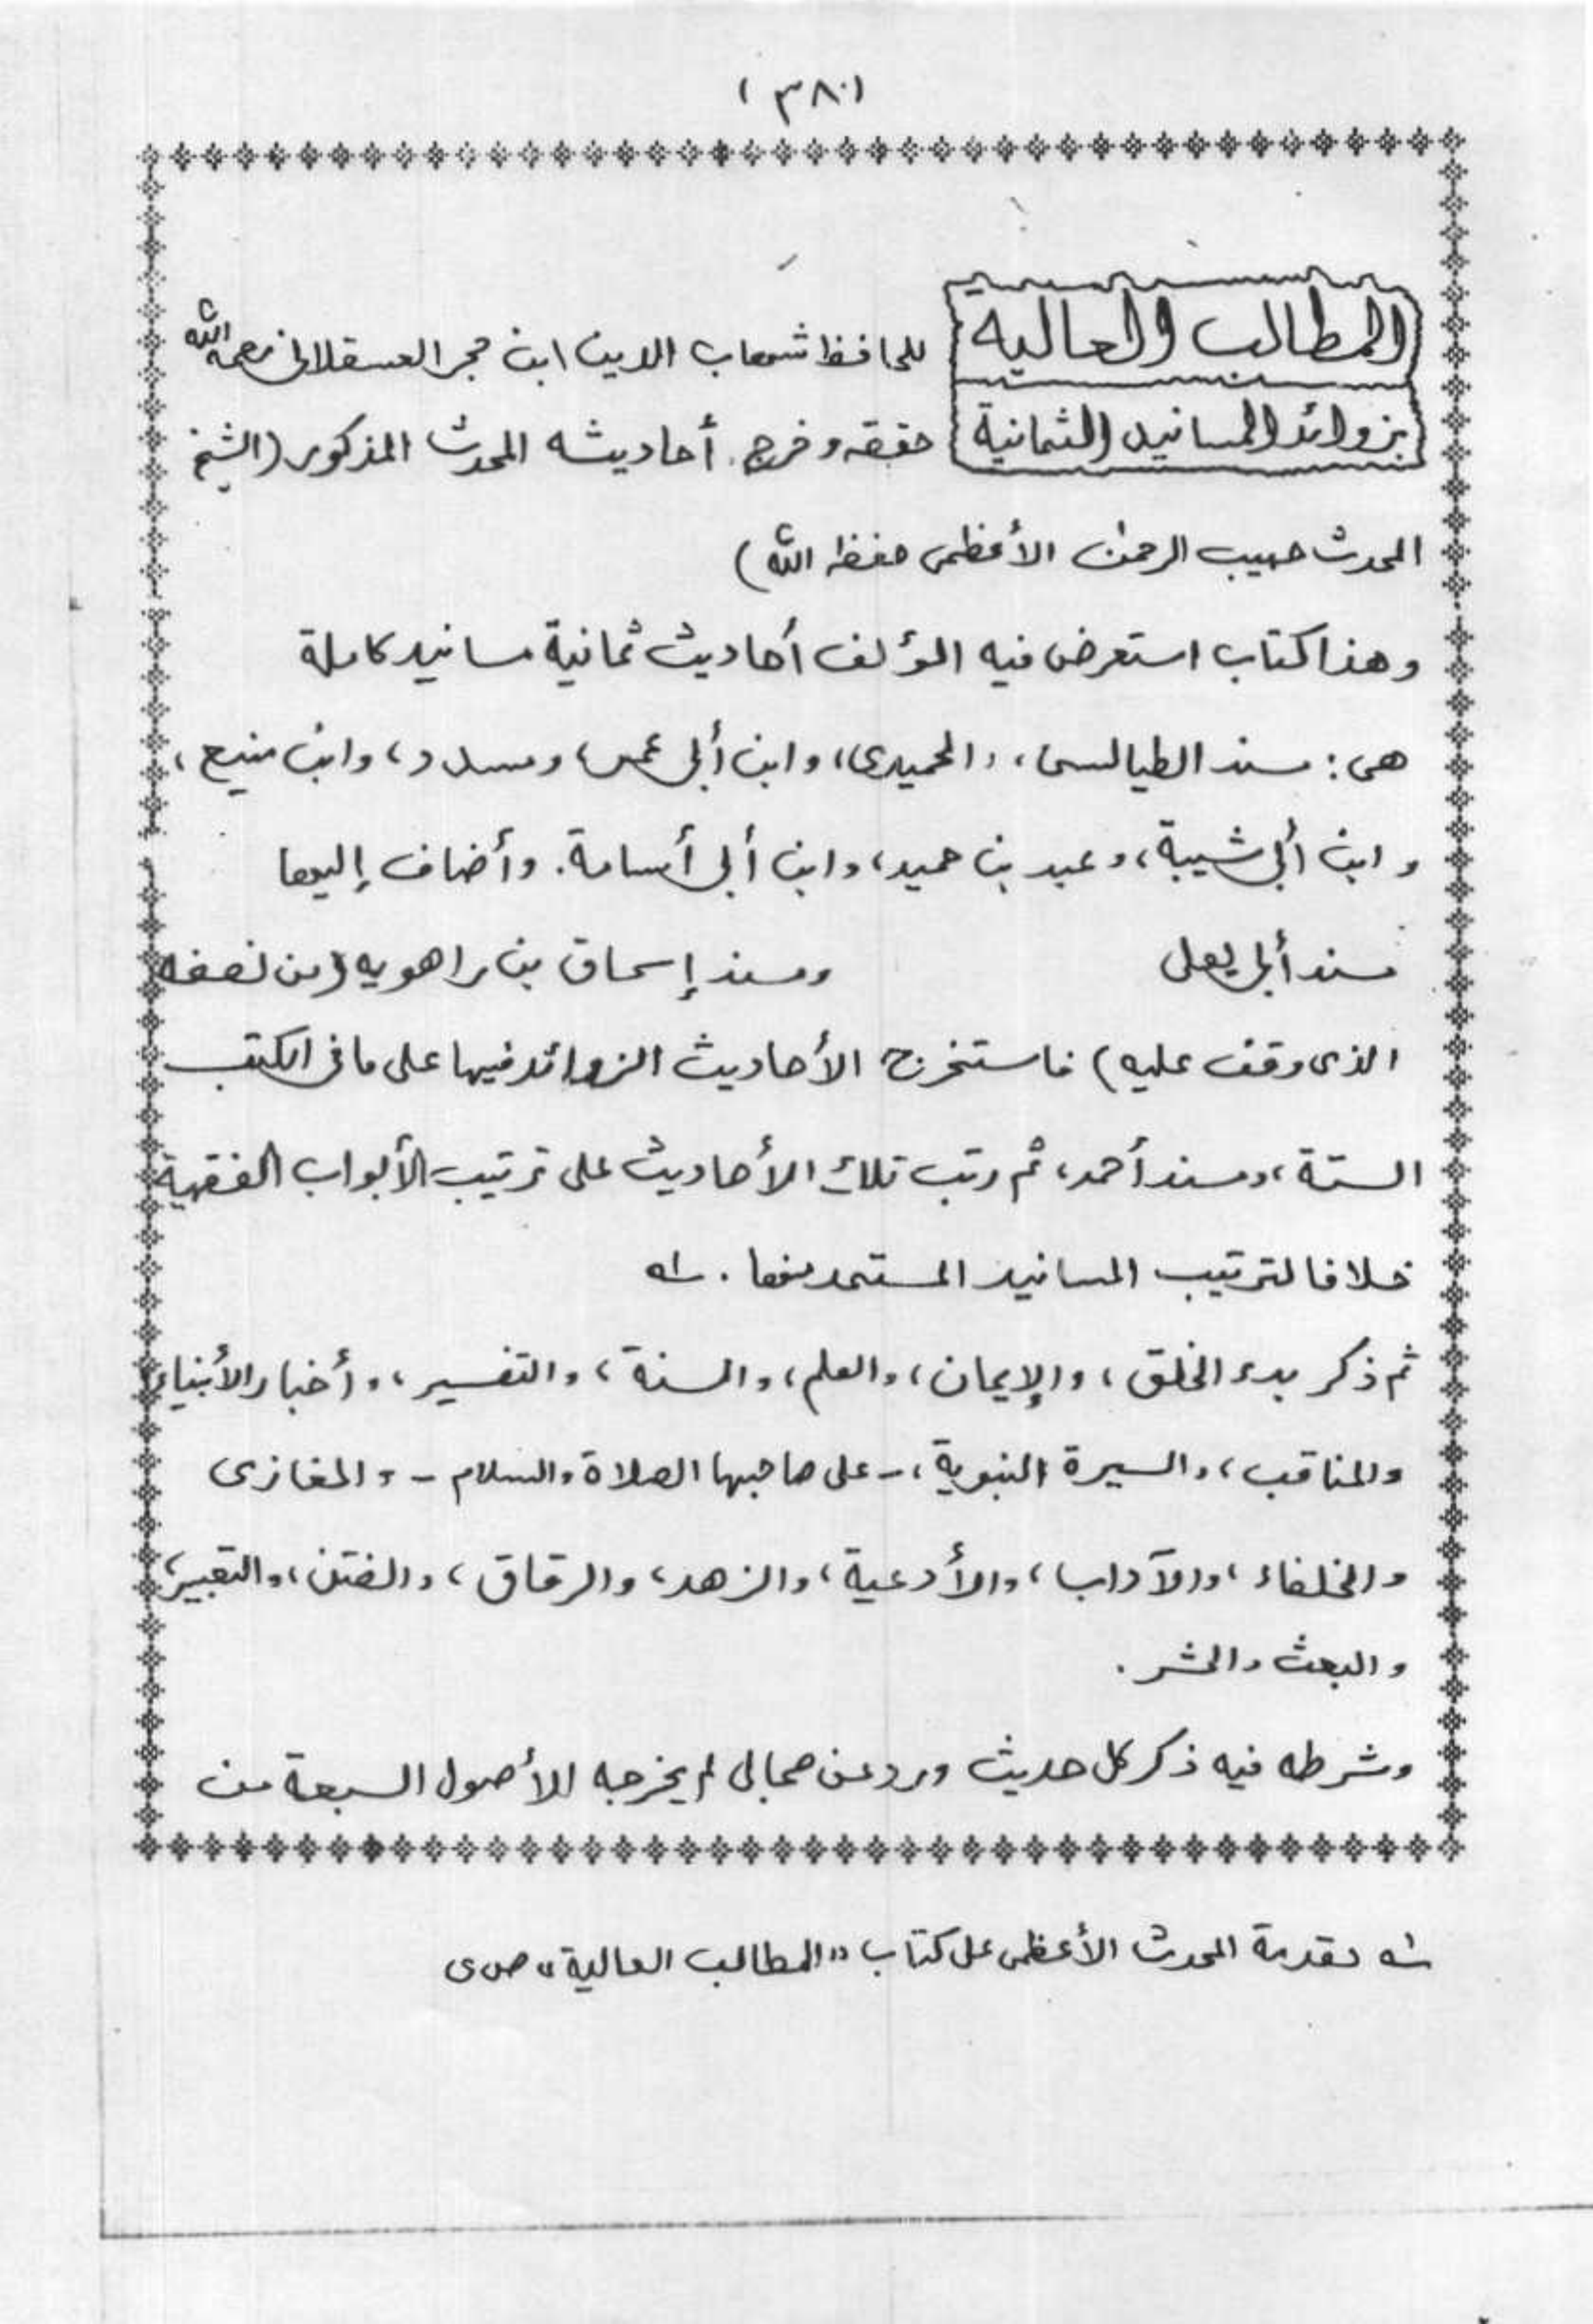 (٣٨٠)
المطالب العالية للحافظ شهاب الدين ابن حجر العسقلاني رحمه الله
بزوائد المسانيد الثمانية حققه وخرج أحاديثه المحدث المذكور (الشيخ
المحدث حبيب الرحمن الأعظمى حفظه الله)
وهذا كتاب استعرض فيه المؤلف أحاديث ثمانية مسانيد كاملة
هى: مسند الطيالسى، والحميدى، وابن أبى عمر، ومسدد، وابن منيع،
وابن أبى شيبة، وعبد بن حميد، وابن أبى أسامة. وأضاف إليها
مسند أبى يعلى ومسند إسحاق بن راهويه (من نصفه
الذى وقف عليه) فاستخرج الأحاديث الزوائد فيها على ما فى الكتب
الستة، ومسند أحمد، ثم رتب تلك الأحاديث على ترتيب الأبواب الفقهية
خلافا لترتيب المسانيد المستمد منها. ـله
ثم ذكر بدء الخلق، والإيمان، والعلم، والسنة، والتفسير، وأخبار الأنبياء
والمناقب، والسيرة النبوية، - على صاحبها الصلاة والسلام - والمغازى
والخلفاء، والآداب، والأدعية، والزهد، والرقاق، والفتن، والتعبير،
والبعث والحشر.
وشرطه فيه ذكر كل حديث ورد عن صحابى لم يخرجه الأصول السبعة من
ـله مقدمة المحدث الأعظمى على كتاب "المطالب العالية" ص ى